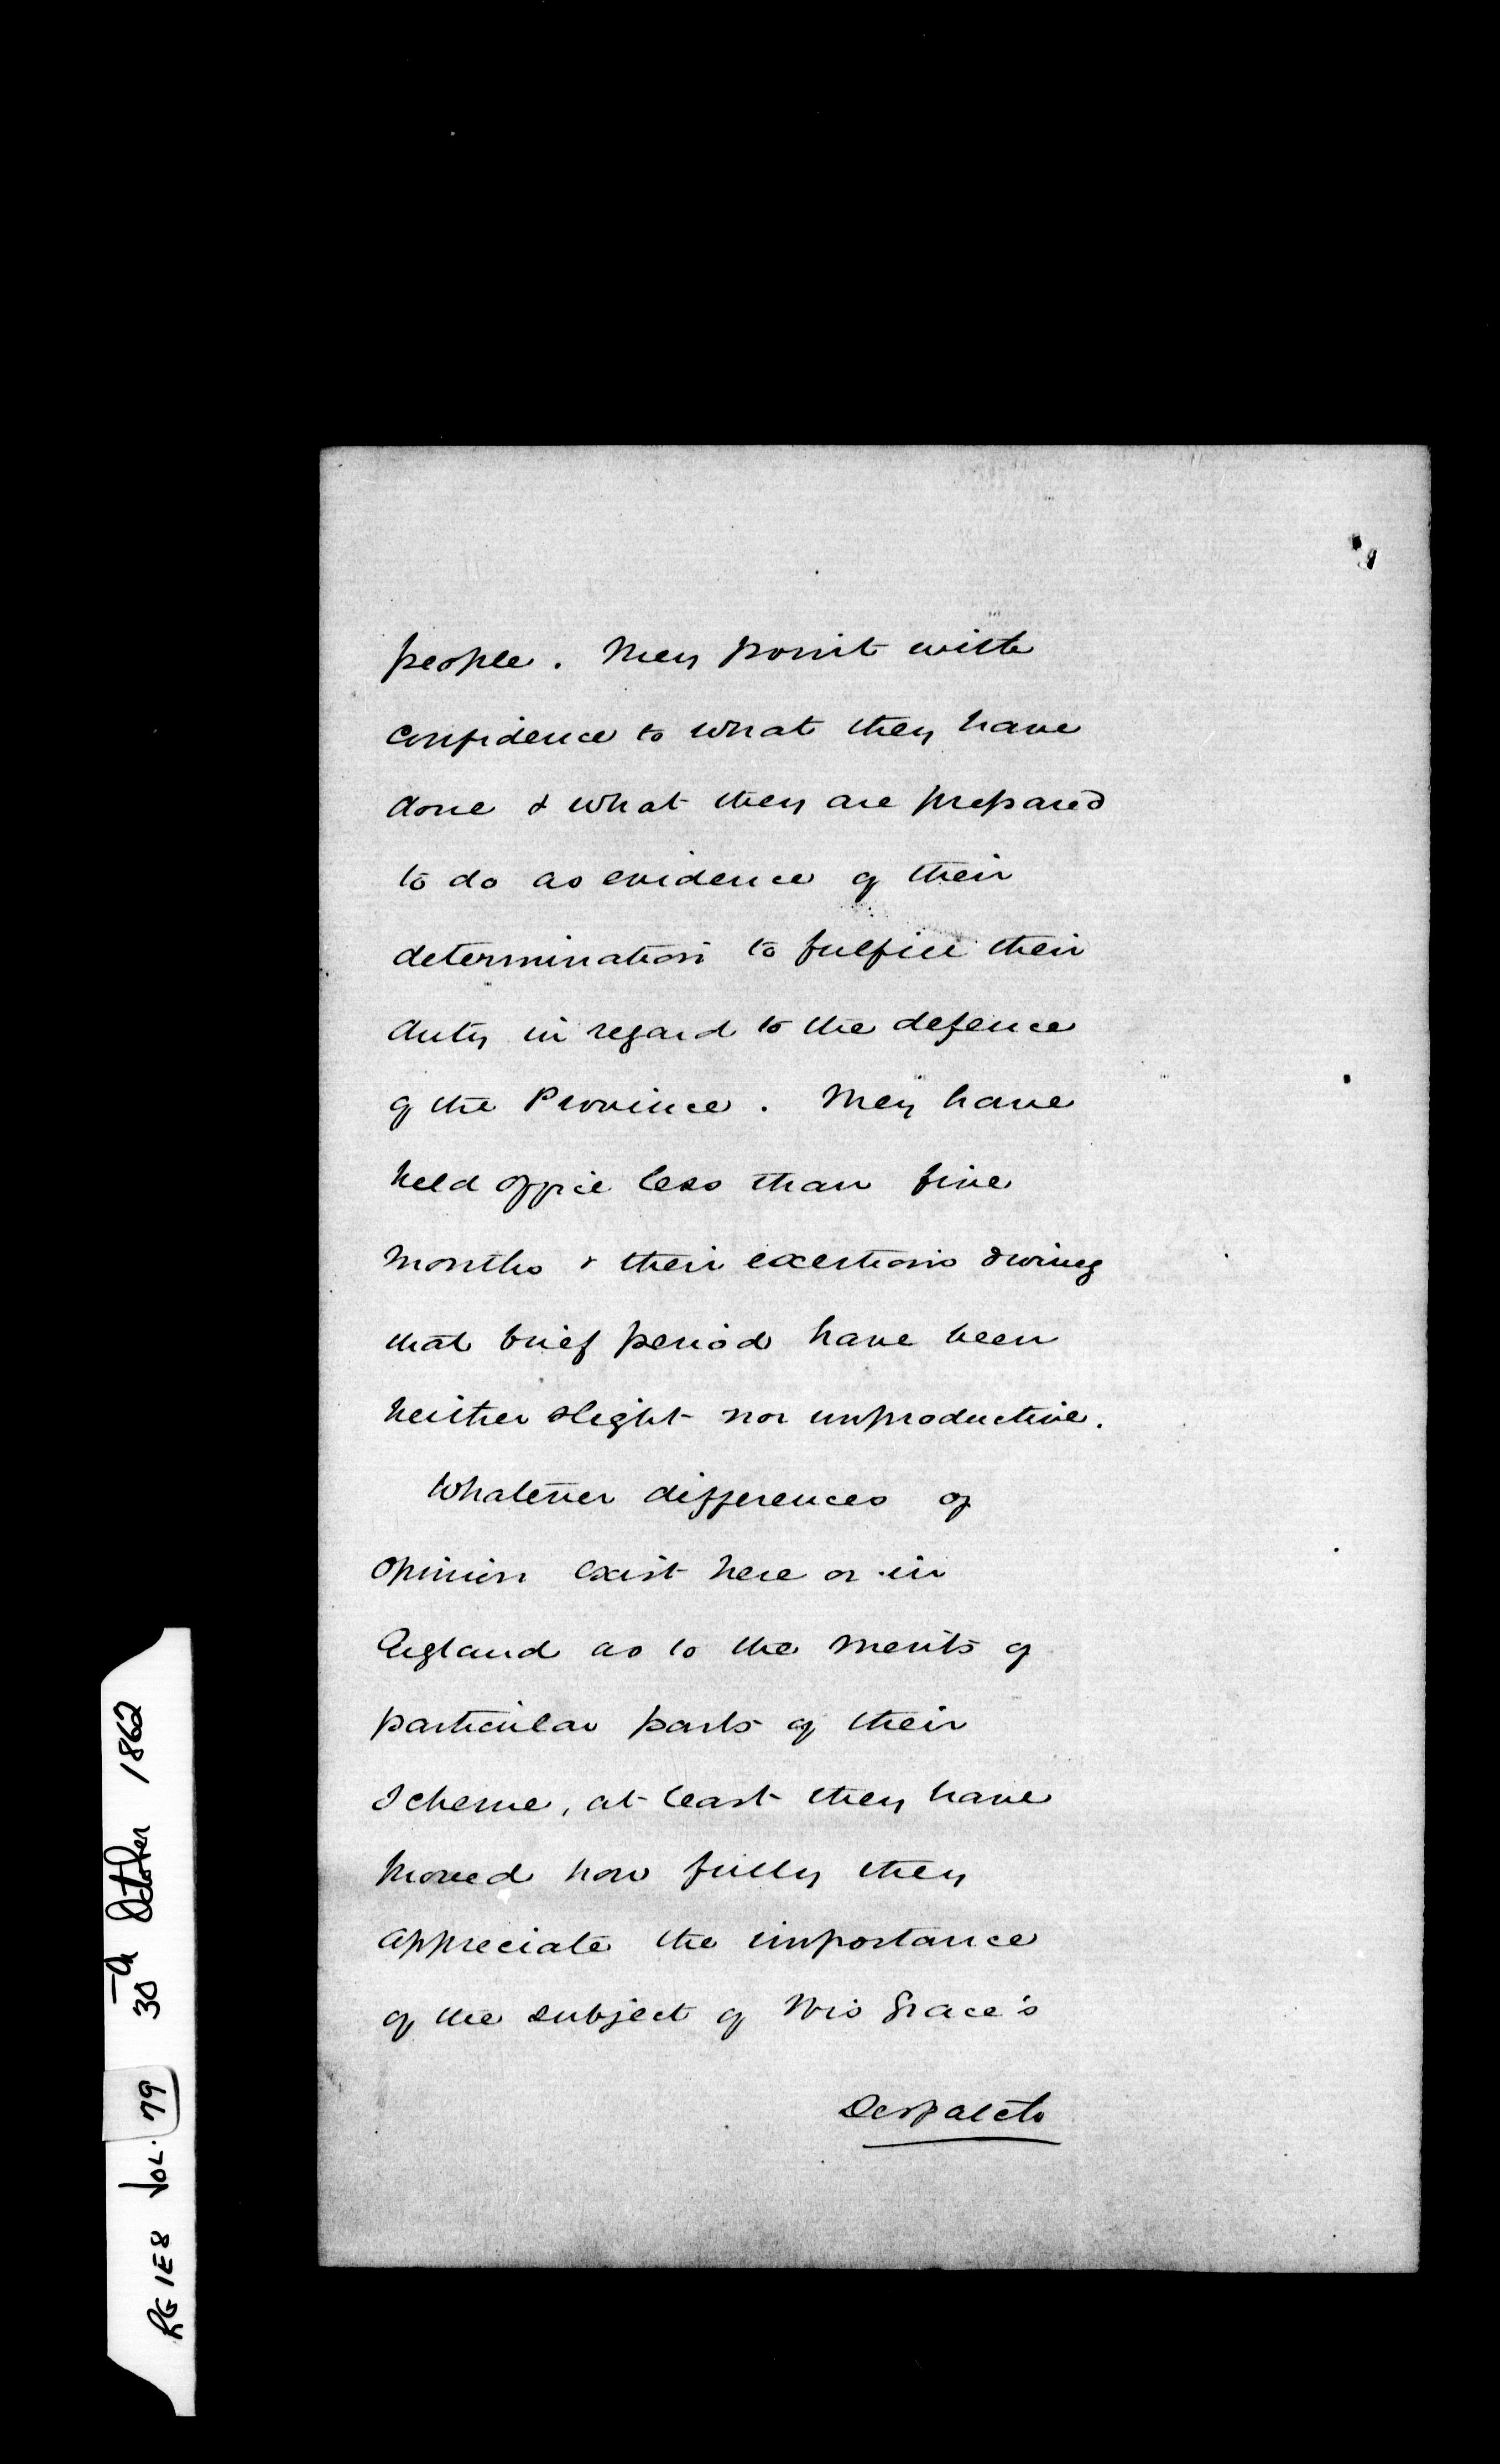 people. They point with
confidence to what they have
done & what they are prepared
to do as evidence of their
determination to fulfill their
duty in regard to the defence
of the Province. They have
held office less than five
months & their exertions during
that brief period have been
neither slight nor unproductive.
Whatever differences of
opinion exist here or in
England as to the merits of
particular parts of their
Scheme, at least they have
proved how fully they
appreciate the importance
of the subject of His Grace's
Despatch
RG 1E8 VOL. 79 30th October 1862